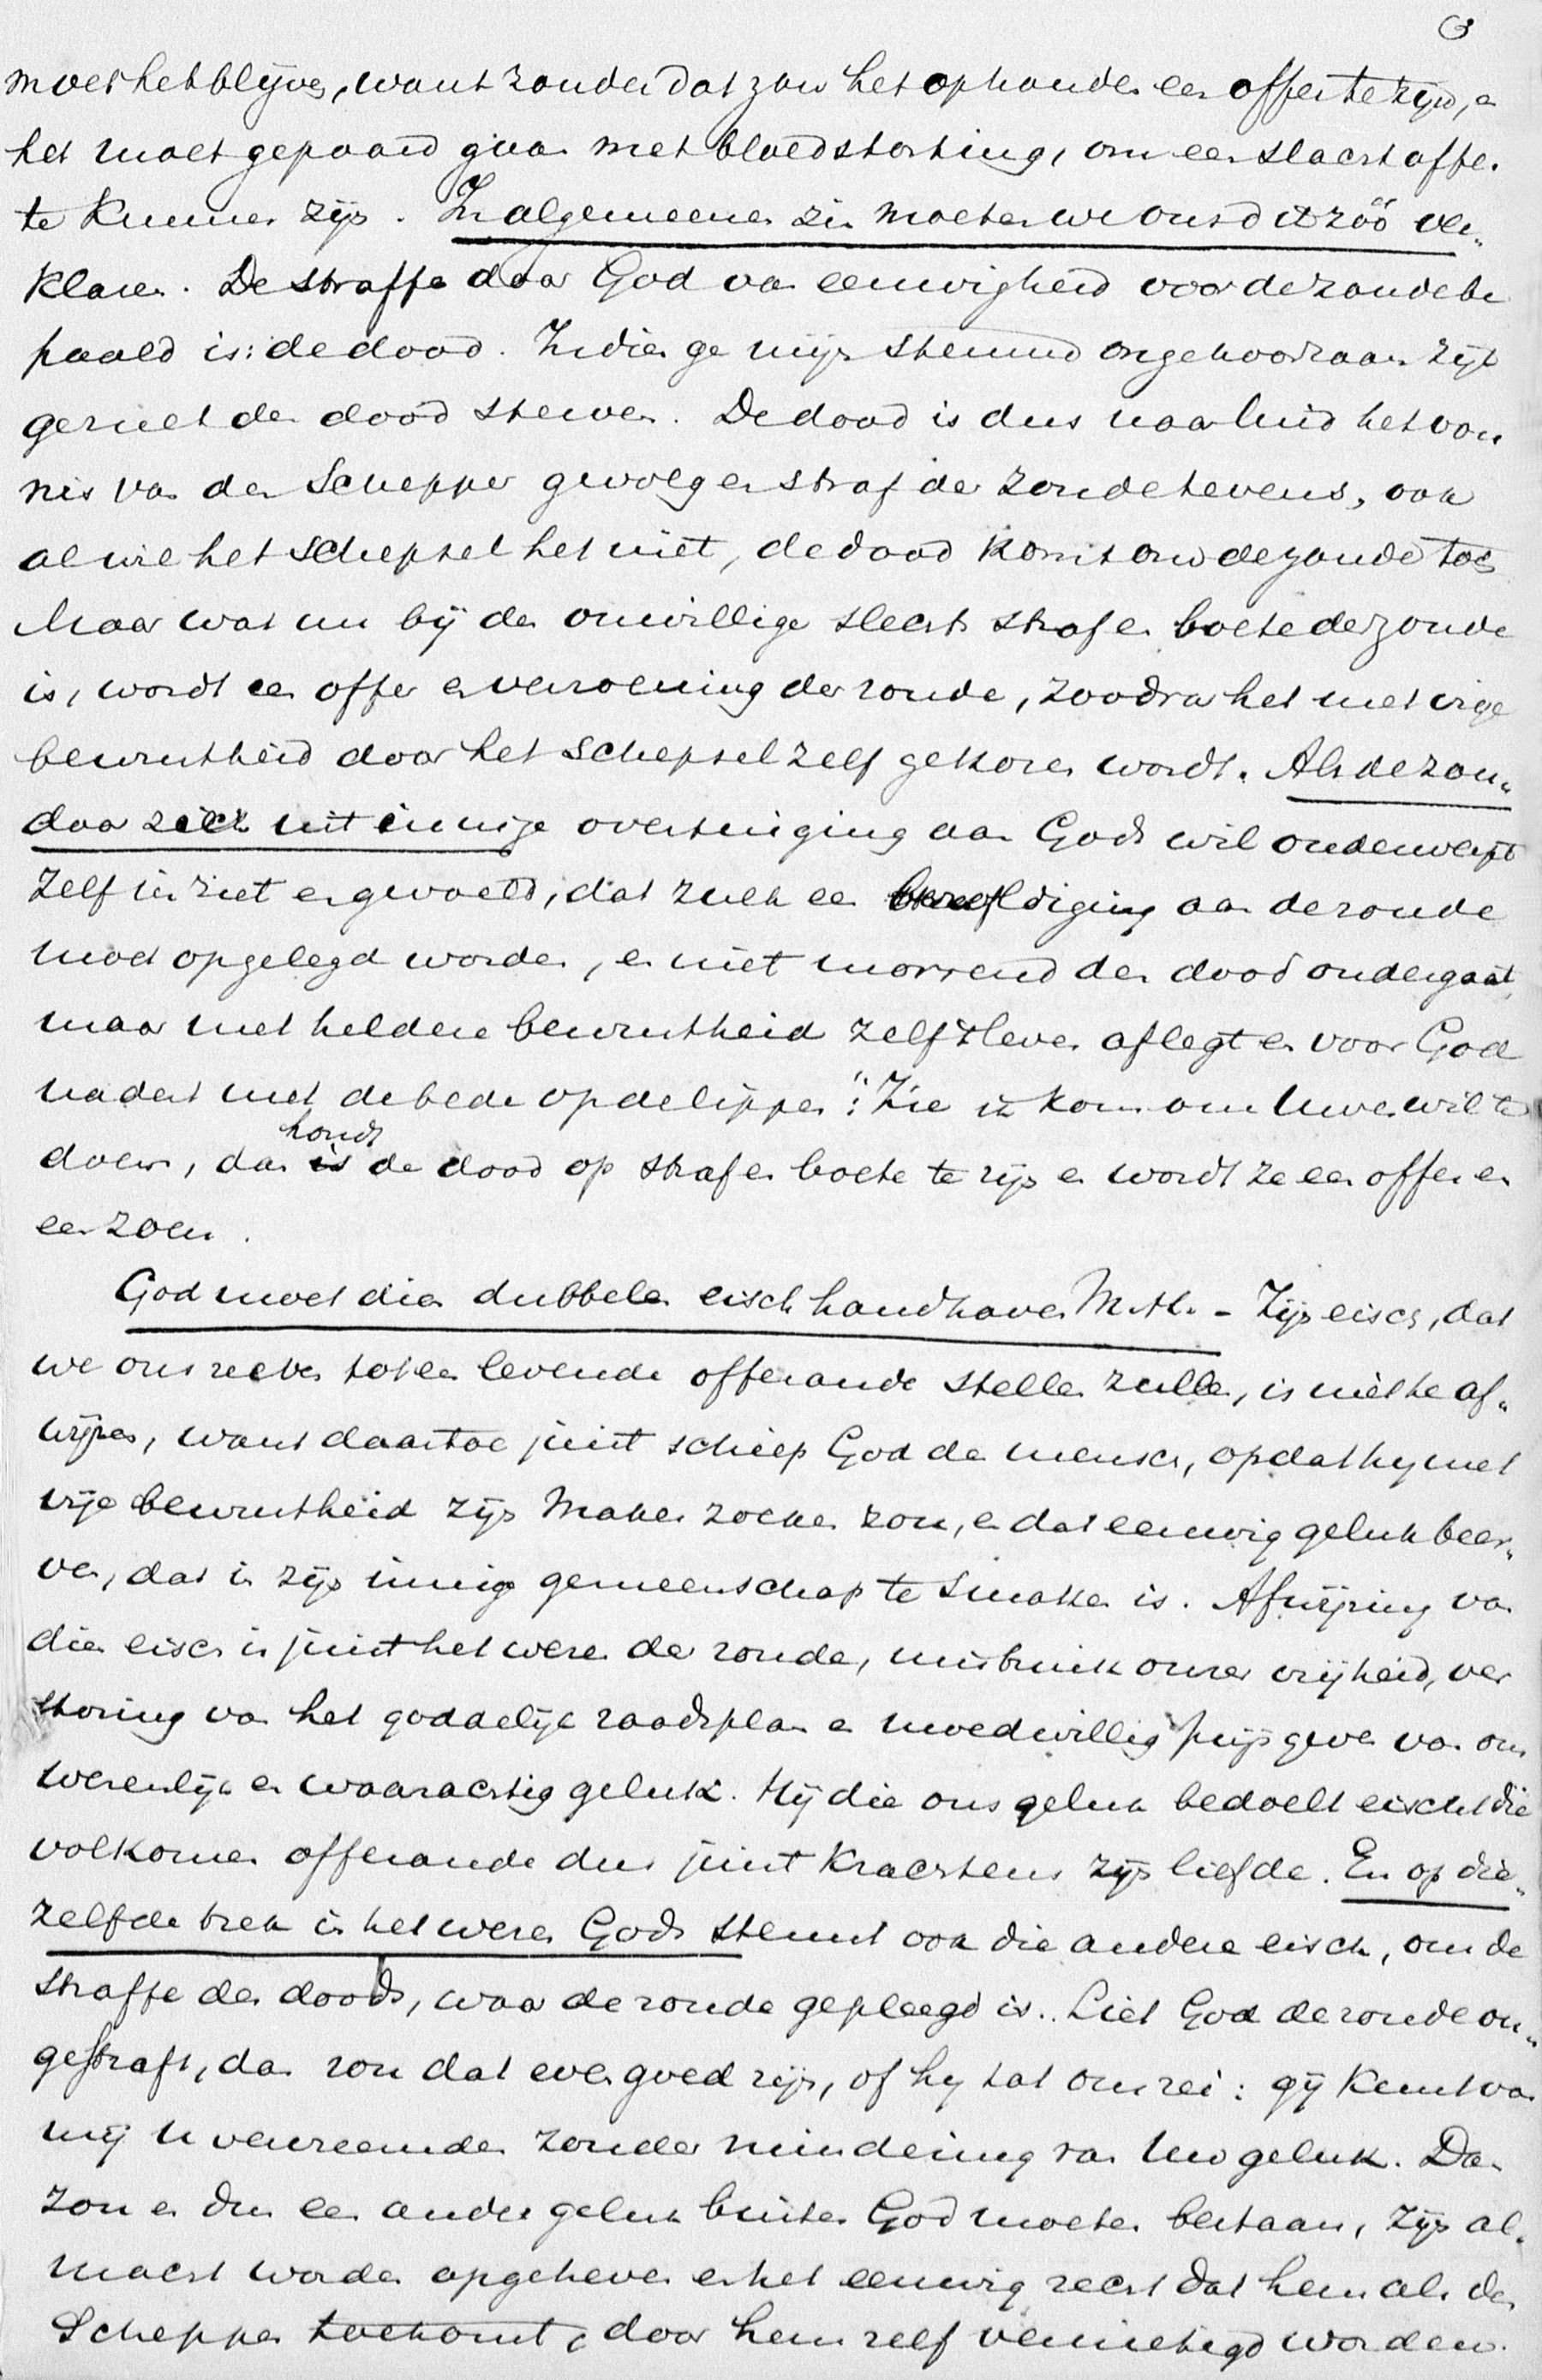 3
moet het blijven, want zonder dat zou het ophouden een offer te zijn, en
het moet gepaard gaan met bloedstorting, om een slachtoffer
te kunnen zijn. In algemeenen zin moeten we ons dit zóó ver-
klaren. De straffe door God van eeuwigheid voor de zonde be
paald is: de dood. Indien ge mijn stemme ongehoorzaam zijt
ge zult den dood sterven. De dood is dus naar luid het von
nis van den Schepper gevolg en straf der zonde tevens, ook
al wil het schepsel het niet, de dood komt om de zonde toch
Maar wat nu bij den onwillige slechts straf en boete der zonde
is, wordt een offer en verzoening der zonde, zoodra het met vrije
bewustheid door het schepsel zelf gekozen wordt. Als de zon-
daar zich uit innige overtuiging aan Gods wil onderwerpt
zelf inziet en gevoeld, dat zulk een diging aan de zonde
moet opgelegd worden, en niet morrend den dood ondergaat,
maar met heldere bewustheid zelf 't leven aflegt en voor God
nadert met de bede op de lippen: "Zie ik kom om Uwen wil te
doen, dan houdt de dood op straf en boete te zijn en wordt ze een offer en
een zoen.
God moet dien dubbelen eisch handhaven M.H. - Zijn eisch, dat
we ons zelven tot een levende offerande stellen zullen, is niet te af-
wijzen, want daartoe juist schiep God den mensch, opdat hij met
vrije bewustheid zijn Maker zoeken zou, en dat eeuwig geluk beër-
ven, dat in zijn innige gemeenschap te smaken is. Afwijzing van
dien eisch is juist het wezen der zonde, misbruik onzer vrijheid, ver
storing van het goddelijk raadsplan en moedwillig prijsgeven van ons
wezenlijk en waarachtig geluk. Hij die ons geluk bedoelt eischt die
volkomen offerande dus juist krachtens zijn liefde. En op die-
zelfde trek in het wezen Gods steunt ook die andere eisch, om de
straffe des doods, waar de zonde gepleegd is. Liet God de zonde on-
gestraft, dan zou dat even goed zijn, of hij tot ons zei: gij kunt van
mij U vervreemden zonder mindering van Uw geluk. Dan
zou er dus een ander geluk buiten God moeten bestaan, zijn al-
macht worden opgeheven en het eeuwig recht dat hem als den
Schepper toekomt, door hem zelf vernietigd worden.